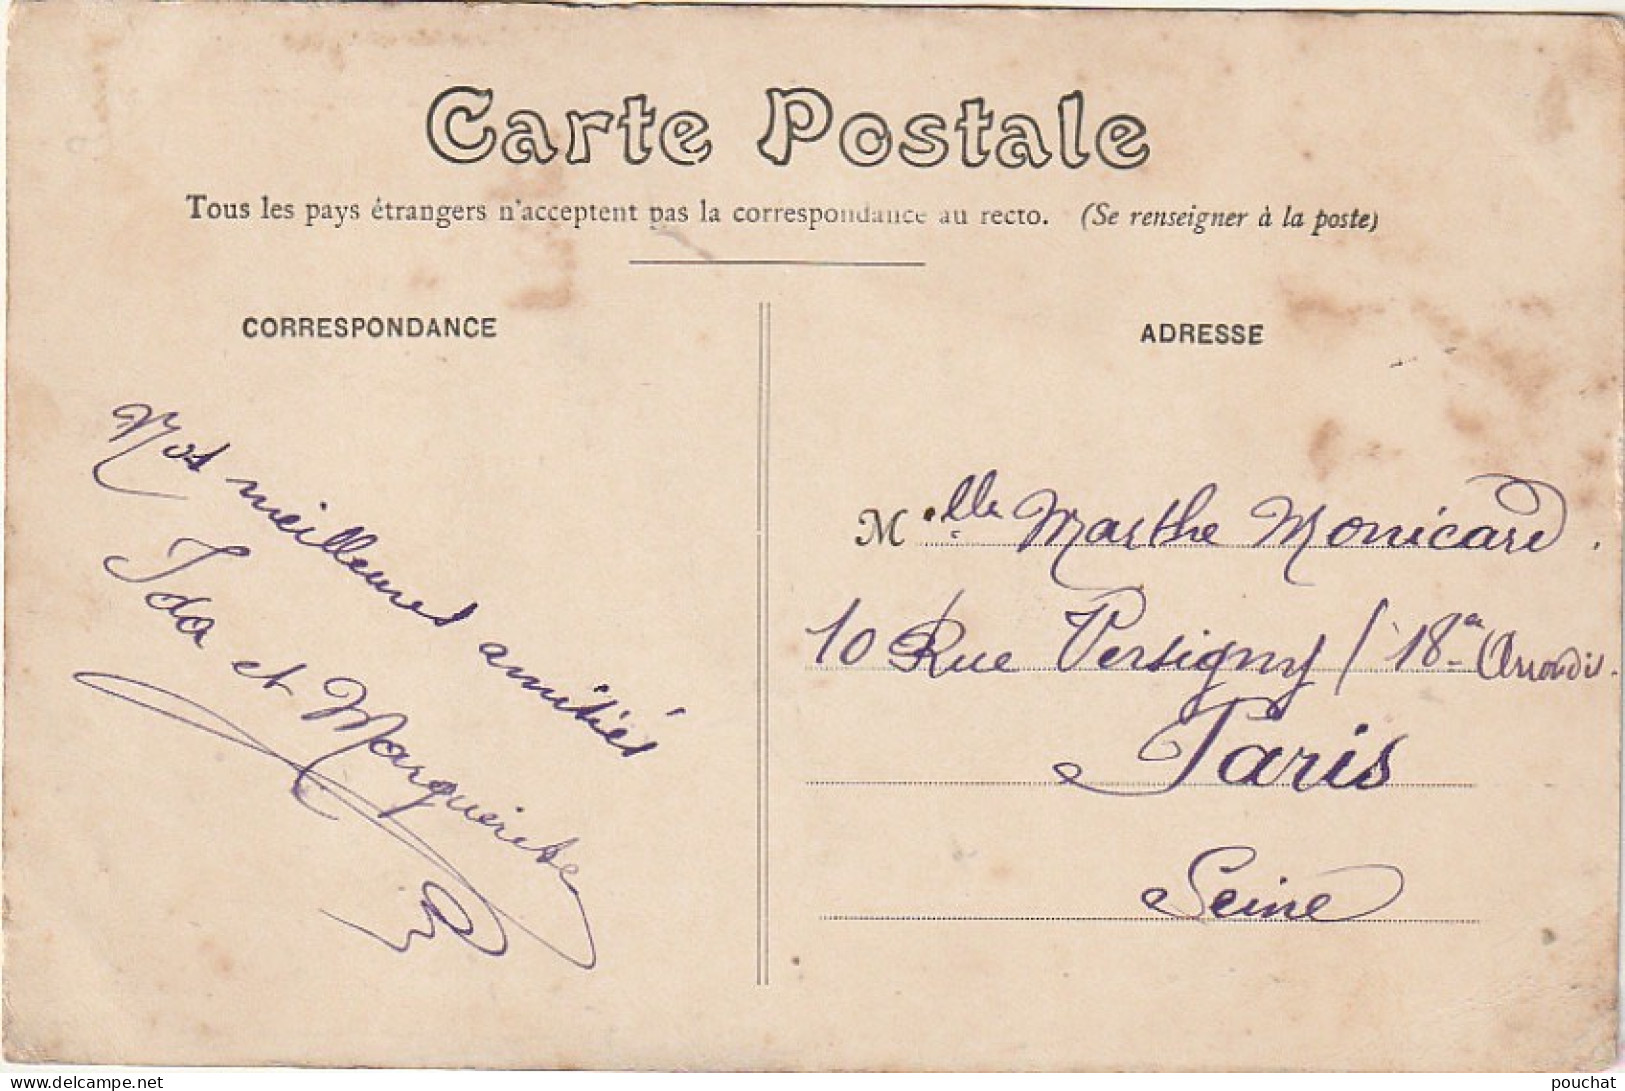 Carte Postale
Tous les pays étrangers n'acceptent pas la correspondance au recto. (Se renseigner à la poste)
CORRESPONDANCE
Nos meilleures amitiés
Ida et Marguerite
ADRESSE
Melle Marthe Monicard.
10 Rue Persigny / 18e Arrondis.
Paris
Seine
www.delcampe.net
pouchat